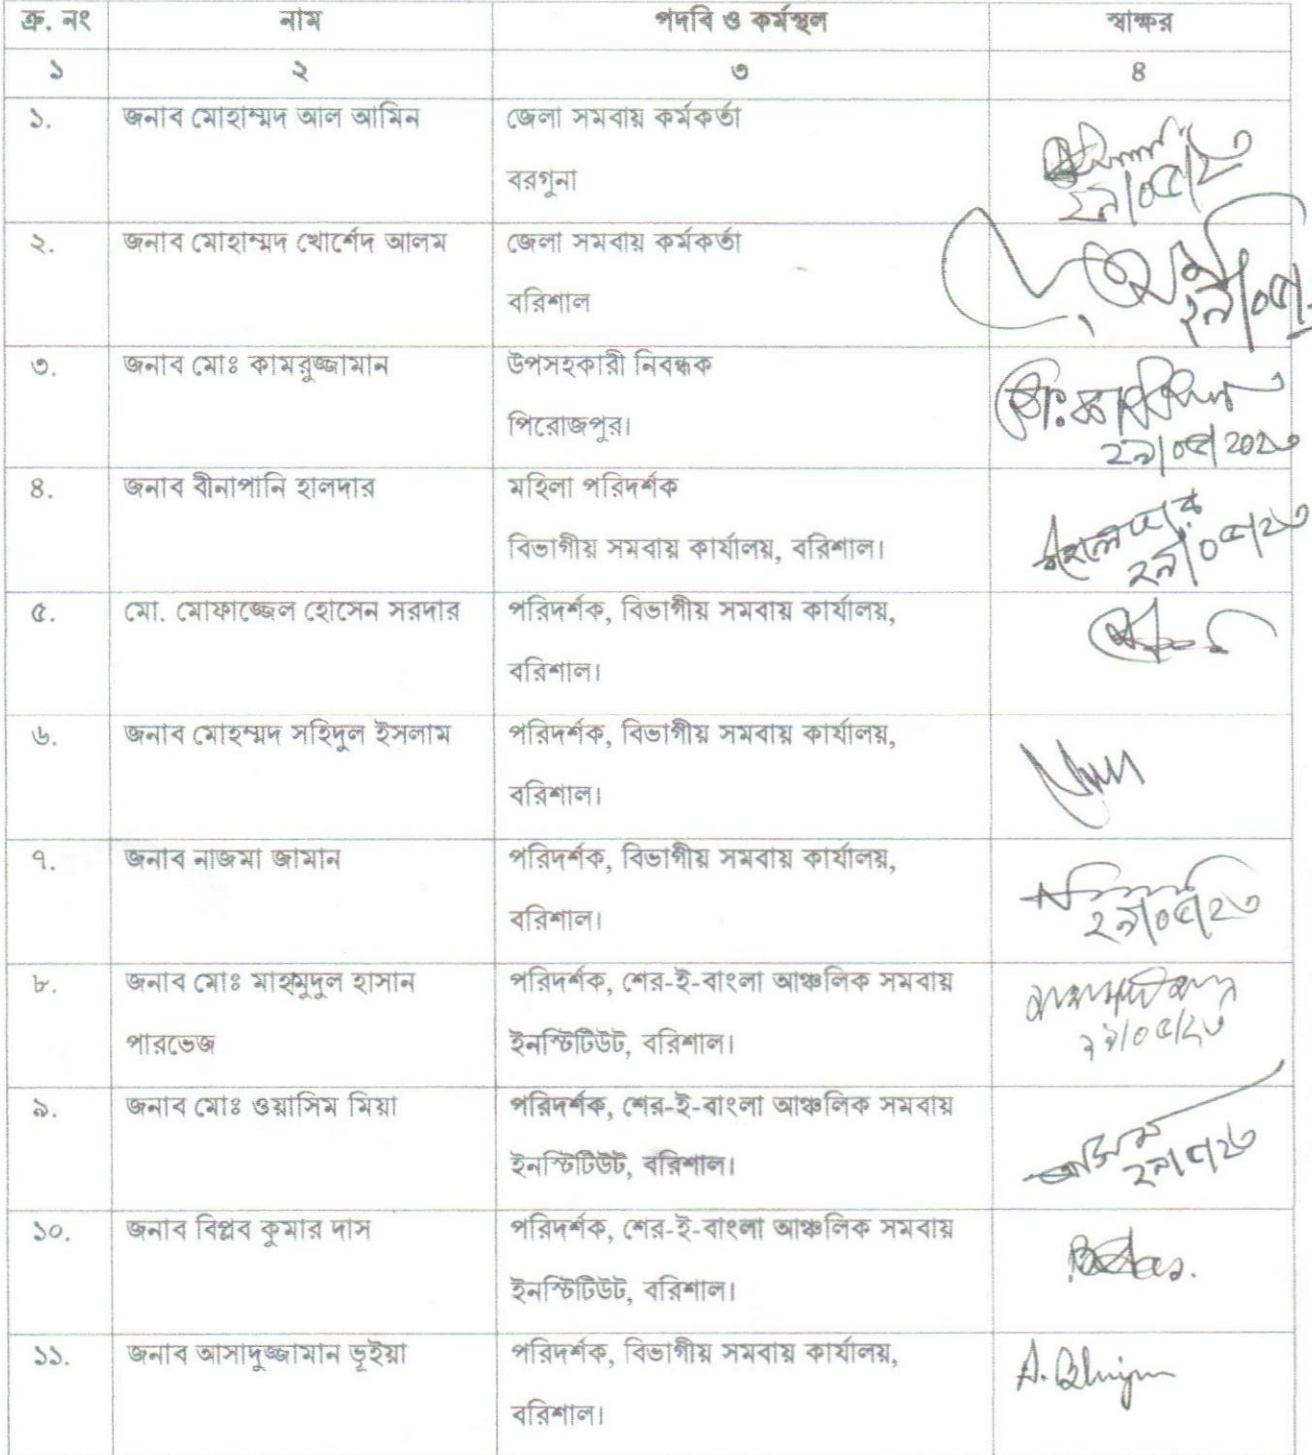 ক্র. নং নাম পদবি ও কর্মস্থল স্বাক্ষর
১ ২ ৩ ৪
১. জনাব মোহাম্মদ আল আমিন জেলা সমবায় কর্মকর্তা
বরগুনা
২৯/০৫/২৩
২. জনাব মোহাম্মদ খোর্শেদ আলম জেলা সমবায় কর্মকর্তা
বরিশাল
২৯/০৫/
৩. জনাব মোঃ কামরুজ্জামান উপসহকারী নিবন্ধক
পিরোজপুর।
২৯/০৫/২০২৩
৪. জনাব বীনাপানি হালদার মহিলা পরিদর্শক
বিভাগীয় সমবায় কার্যালয়, বরিশাল।
হালদার
২৯/০৫/২৩
৫. মো. মোফাজ্জেল হোসেন সরদার পরিদর্শক, বিভাগীয় সমবায় কার্যালয়,
বরিশাল।
৬. জনাব মোহম্মদ সহিদুল ইসলাম পরিদর্শক, বিভাগীয় সমবায় কার্যালয়,
বরিশাল।
৭. জনাব নাজমা জামান পরিদর্শক, বিভাগীয় সমবায় কার্যালয়,
বরিশাল।
২৯/০৫/২৩
৮. জনাব মোঃ মাহমুদুল হাসান পরিদর্শক, শের-ই-বাংলা আঞ্চলিক সমবায়
পারভেজ ইনস্টিটিউট, বরিশাল।
২৯/০৫/২৩
৯. জনাব মোঃ ওয়াসিম মিয়া পরিদর্শক, শের-ই-বাংলা আঞ্চলিক সমবায়
ইনস্টিটিউট, বরিশাল।
২৯/৫/২৩
১০. জনাব বিপ্লব কুমার দাস পরিদর্শক, শের-ই-বাংলা আঞ্চলিক সমবায়
ইনস্টিটিউট, বরিশাল।
১১. জনাব আসাদুজ্জামান ভূইয়া পরিদর্শক, বিভাগীয় সমবায় কার্যালয়,
বরিশাল।